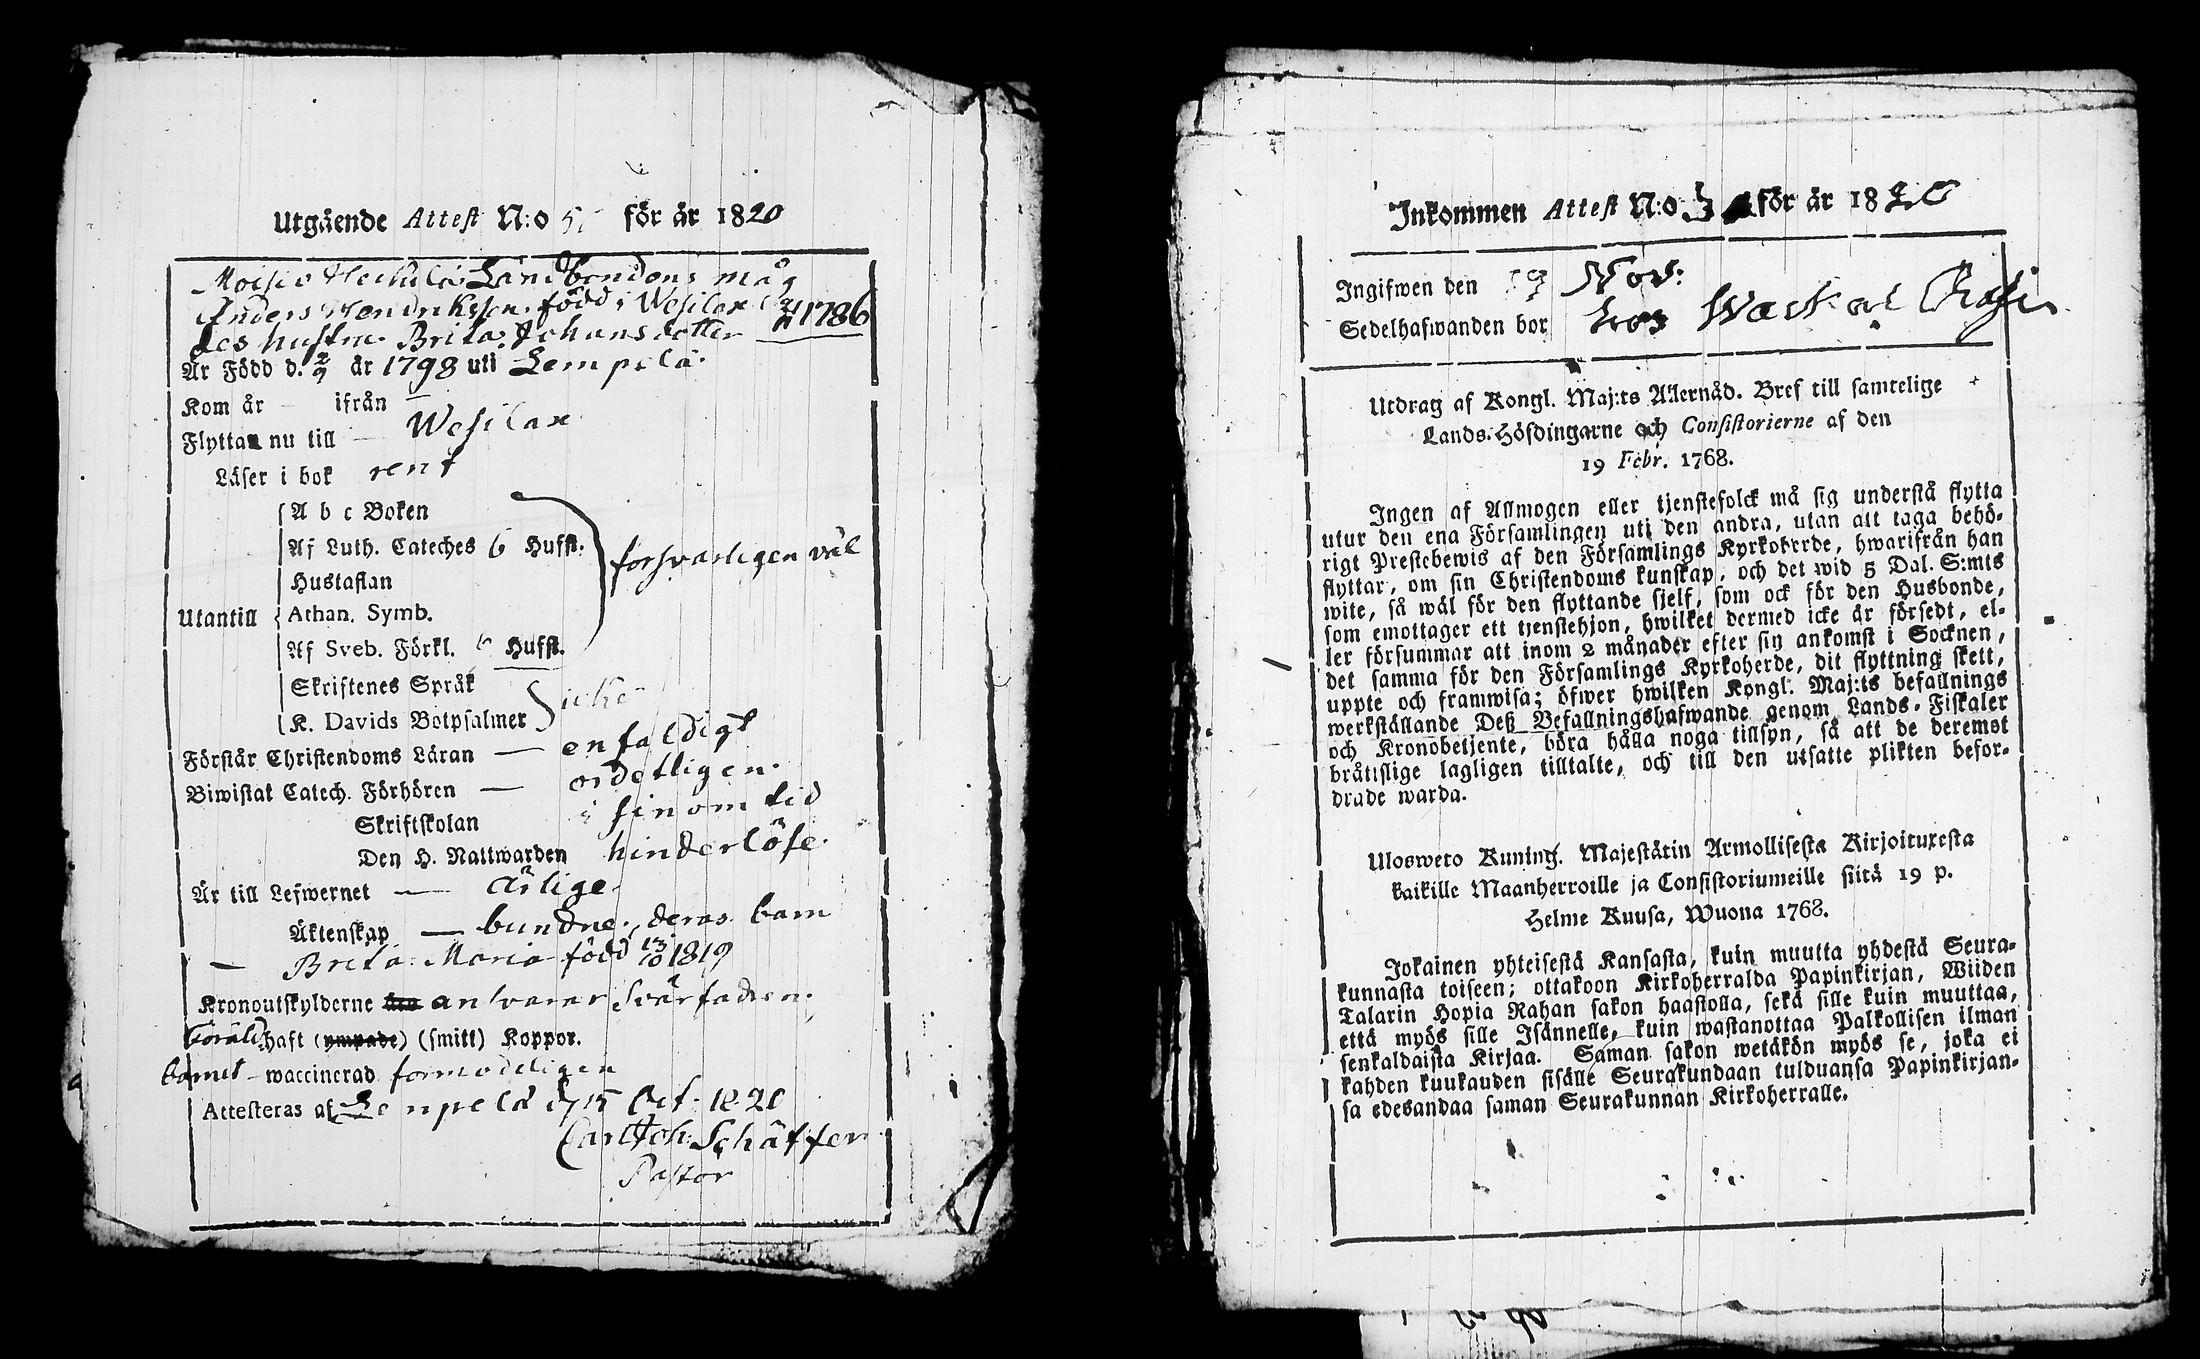 Utgående Attest N:o 5 för år 1820
Moisio Heikilä Landbondens måg
Anders Hendriksson född i Wesilax 21/11 1786
des hustru Brita Johansdotter
Är Född d. 2/9 år 1798 uti Lempelä.
Kom år — ifrån —
Flyttar nu till — Wesilax
Läser i bok rent
A b c Boken
Af Luth. Cateches 6 Hufst.
försvarligen väl
Hustaflan
Utantill Athan. Symb.
Af Sveb. Förkl. 6 Hufst.
Skriftenes Språk
icke
K. Davids Botpsalmer
Förstår Christendoms Läran — enfaldigt
Biwistat Catech. Förhören — ordetligen.
Skriftskolan i sinom tid
Den H. Nattwarden hinderlöse.
Är till Lefwernet — ärlige.
Äktenskap — bundne, deras barn
— Brita Maria född 13/10 1819
Kronoutskylderne ansvarar svärfadren.
haft (ympade) (smitt) Koppor.
barnet — waccinerad formodeligen
Attesteras af Lempelä d. 15 Oct. 1820
Carl Joh. Schäffer
Pastor
Inkommen Attest N:o 3 för år 1820
Ingifwen den 19 Nov:
Sedelhafwanden bor hos
Utdrag af Kongl. Maj:ts Allernåd. Bref till samtelige
Lands-Höfdingarne och Consistorierne af den
19 Febr. 1768.
Ingen af Allmogen eller tjenstefolck må sig understå flytta
utur den ena Församlingen uti den andra, utan att taga behö-
rigt Prestebewis af den Församlings Kyrkoherde, hwarifrån han
flyttar, om sin Christendoms kunskap, och det wid 5 Dal. S:mts
wite, så wäl för den flyttande sjelf, som ock för den Husbonde,
som emottager ett tjenstehjon, hwilket dermed icke är försedt, el-
ler försummar att inom 2 månader efter sin ankomst i Socknen,
det samma för den Församlings Kyrkoherde, dit flyttning skett,
uppte och framwisa; öfwer hwilken Kongl. Maj:ts befallnings
werkställande Deß Befallningshafwande genom Lands-Fiskaler
och Kronobetjente, böra hålla noga tillsyn, så att de deremot
bråttslige lagligen tilltalte, och till den utsatte plikten befor-
drade warda.
Ulosweto Kuning. Majestätin Armollisesta Kirjoituxesta
kaikille Maanherroille ja Consistoriumeille siitä 19 p.
Helme Kuusa, Wuona 1768.
Jokainen yhteisestä Kansasta, kuin muutta yhdestä Seura-
kunnasta toiseen; ottakoon Kirkoherralda Papinkirjan, Wiiden
Talarin Hopia Rahan sakon haastolla, sekä sille kuin muuttaa,
että myös sille Isännelle, kuin wastanottaa Palkollisen ilman
senkaldaista Kirjaa. Saman sakon wetäkön myös se, joka ei
kahden kuukauden sisälle Seurakundaan tulduansa Papinkirjan-
sa edesandaa saman Seurakunnan Kirkoherralle.